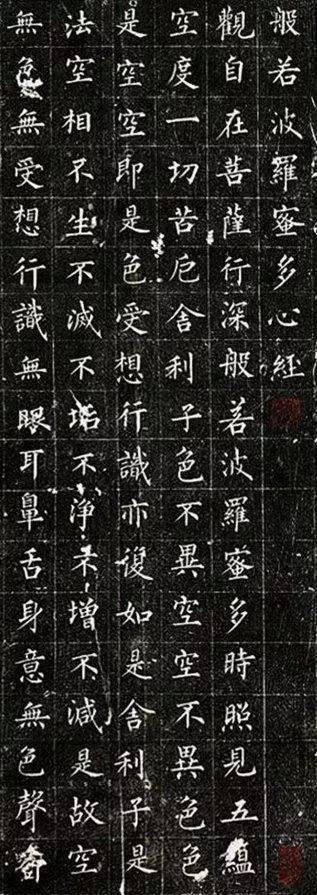 般若波羅蜜多心經
觀自在菩薩行深般若波羅蜜多時照見五蘊
空度一切苦厄舍利子色不異空空不異色色
是空空即是色受想行識亦復如是舍利子是
法空相不生不滅不垢不淨不增不減是故空
無色無受想行識無眼耳鼻舌身意無色聲香